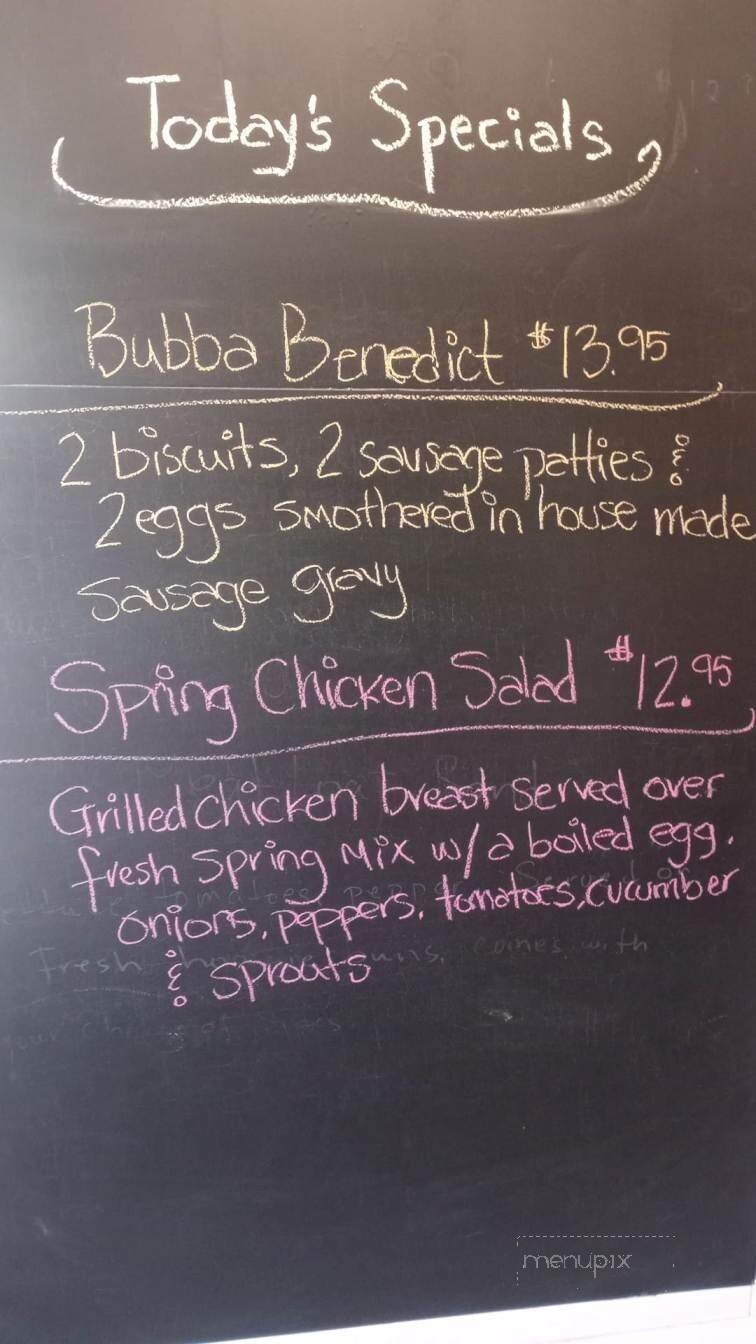 Today's Specials
Bubba Benedict $13.95
2 biscuits, 2 sausage patties &
2 eggs smothered in house made
sausage gravy
Spring Chicken Salad $12.95
Grilled chicken breast served over
fresh spring mix w/ a boiled egg.
onions, peppers, tomatoes, cucumber
& sprouts
menupix